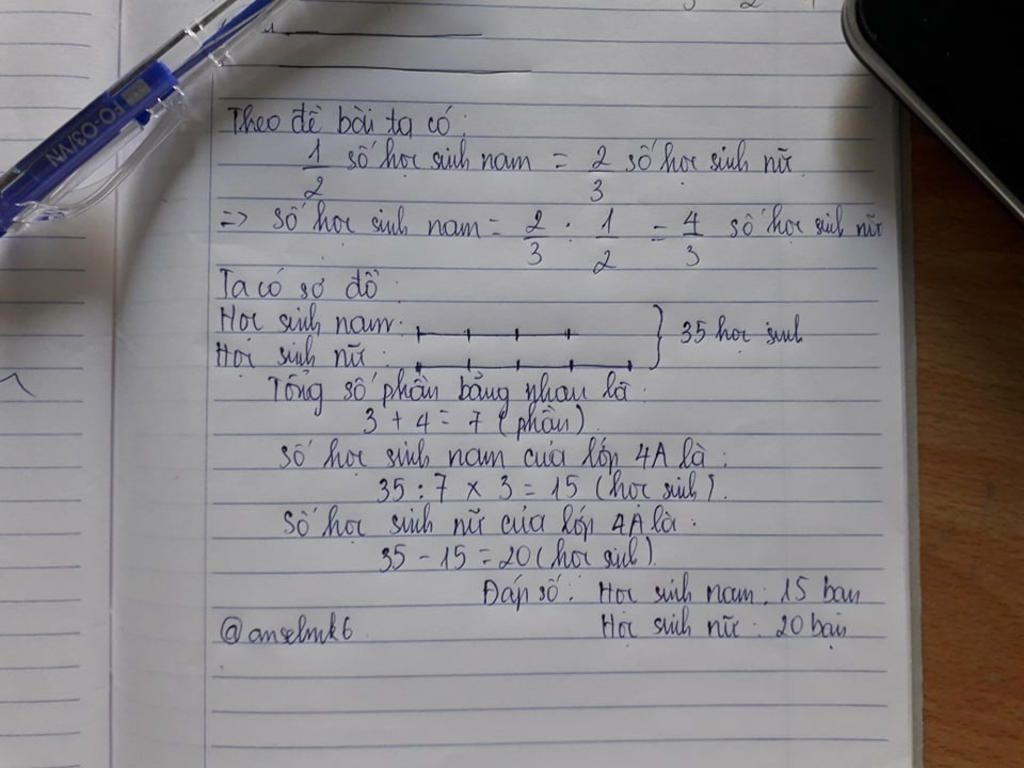 FO-03/VN
Theo đề bài ta có:
1/2 số học sinh nam = 2/3 số học sinh nữ
=> số học sinh nam = 2/3 : 1/2 = 4/3 số học sinh nữ
Ta có sơ đồ:
Học sinh nam: 35 học sinh
Học sinh nữ:
Tổng số phần bằng nhau là:
3 + 4 = 7 (phần)
Số học sinh nam của lớp 4A là:
35 : 7 x 3 = 15 (học sinh).
Số học sinh nữ của lớp 4A là:
35 - 15 = 20 (học sinh)
Đáp số: Học sinh nam: 15 bạn
@anselmk6 Học sinh nữ: 20 bạn